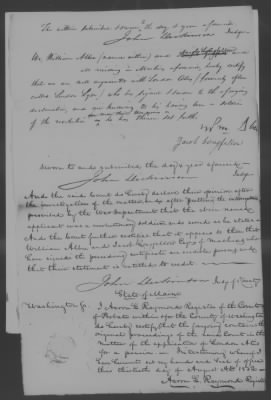 The within subscribed & sworn to the day & year aforesaid
John Dickinson Judge
We William Allen (named within) and
all residing in Machias aforesaid, hereby certify
that we are well acquainted with London Atus (formerly often
called London Lyon) who has signed & sworn to the foregoing
declaration, and our knowing to his having been a soldier
of the revolution as he has therein set forth.
Wm
Jacob Longfellow
Sworn to and subscribed, the day & year aforesaid
John Dickinson Judge
And the said Court do hereby declare their opinion after
the investigation of the matter, and after putting the interrogatories
prescribed by the War Department that the above named
applicant was a revolutionary soldier and served as he states
And the Court further certifies that it appears to them that
William Allen and Jacob Longfellow Esqs of Machias, who
have signed the preceding certificate are credible persons, and
that their statement is entitled to credit
John Dickinson Judge of Probate
State of Maine
Washington Co. I Aaron L Raymond Register of the Court
of Probate within & for the County of Washington
do hereby certify that the foregoing contains the
original proceedings of the said Court in the
matter of the application of London Atus
for a pension. In testimony whereof I
have hereunto set my hand and Seal of office
this thirtieth day of August AD 1832
Aaron L Raymond Register